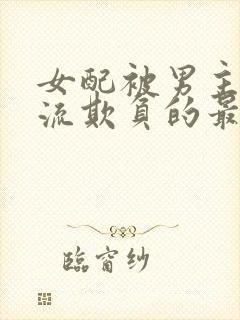 女配被男主
流欺負的最
臨窗纱